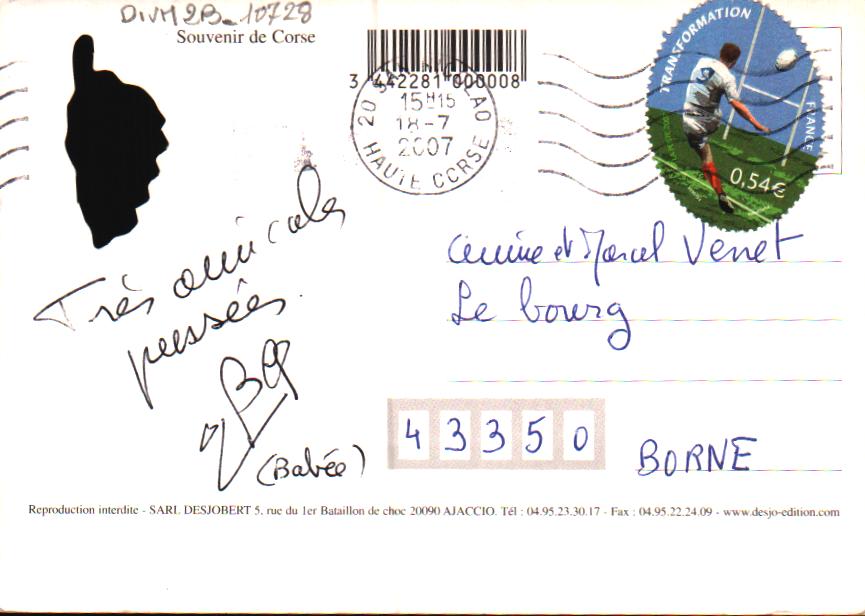 DIVM2B_10728
Souvenir de Corse
3 442281 000008
15H15
18-7
2007
HAUTE CORSE
TRANSFORMATION
FRANCE
0,54€
Très amicales
pensées.
(Babée)
et Marcel Venet
Le bourg
43350
BORNE
Reproduction interdite - SARL DESJOBERT 5, rue du 1er Bataillon de choc 20090 AJACCIO. Tél : 04.95.23.30.17 - Fax : 04.95.22.24.09 - www.desjo-edition.com